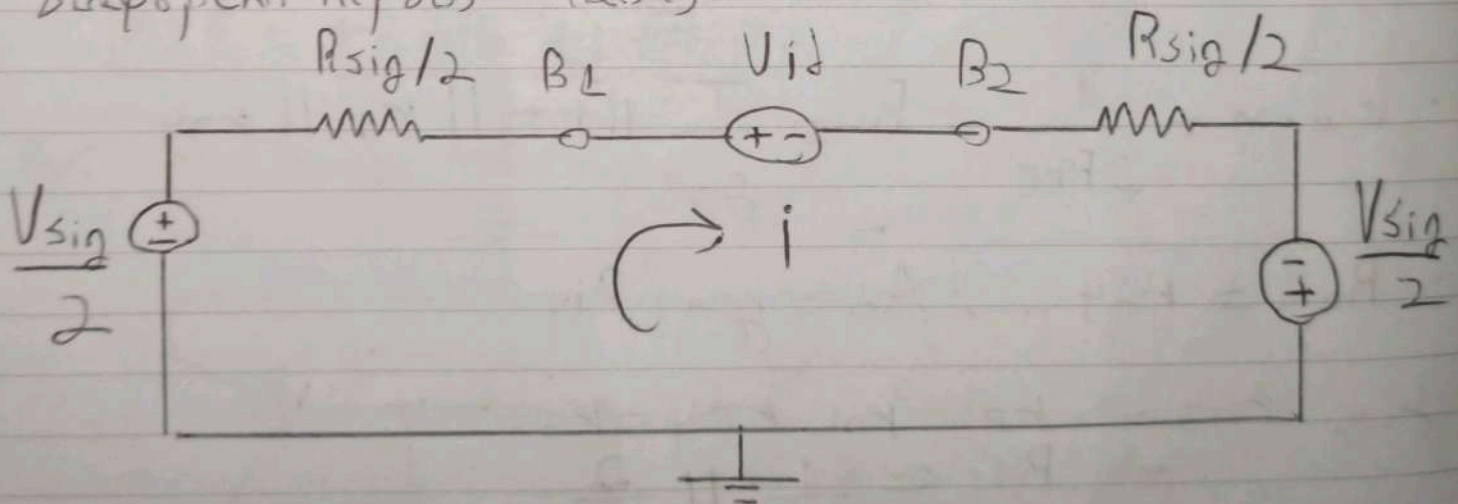 Rsig/2 B1 Vid B2 Rsig/2
+ -
Vsig/2 + - i - + Vsig/2